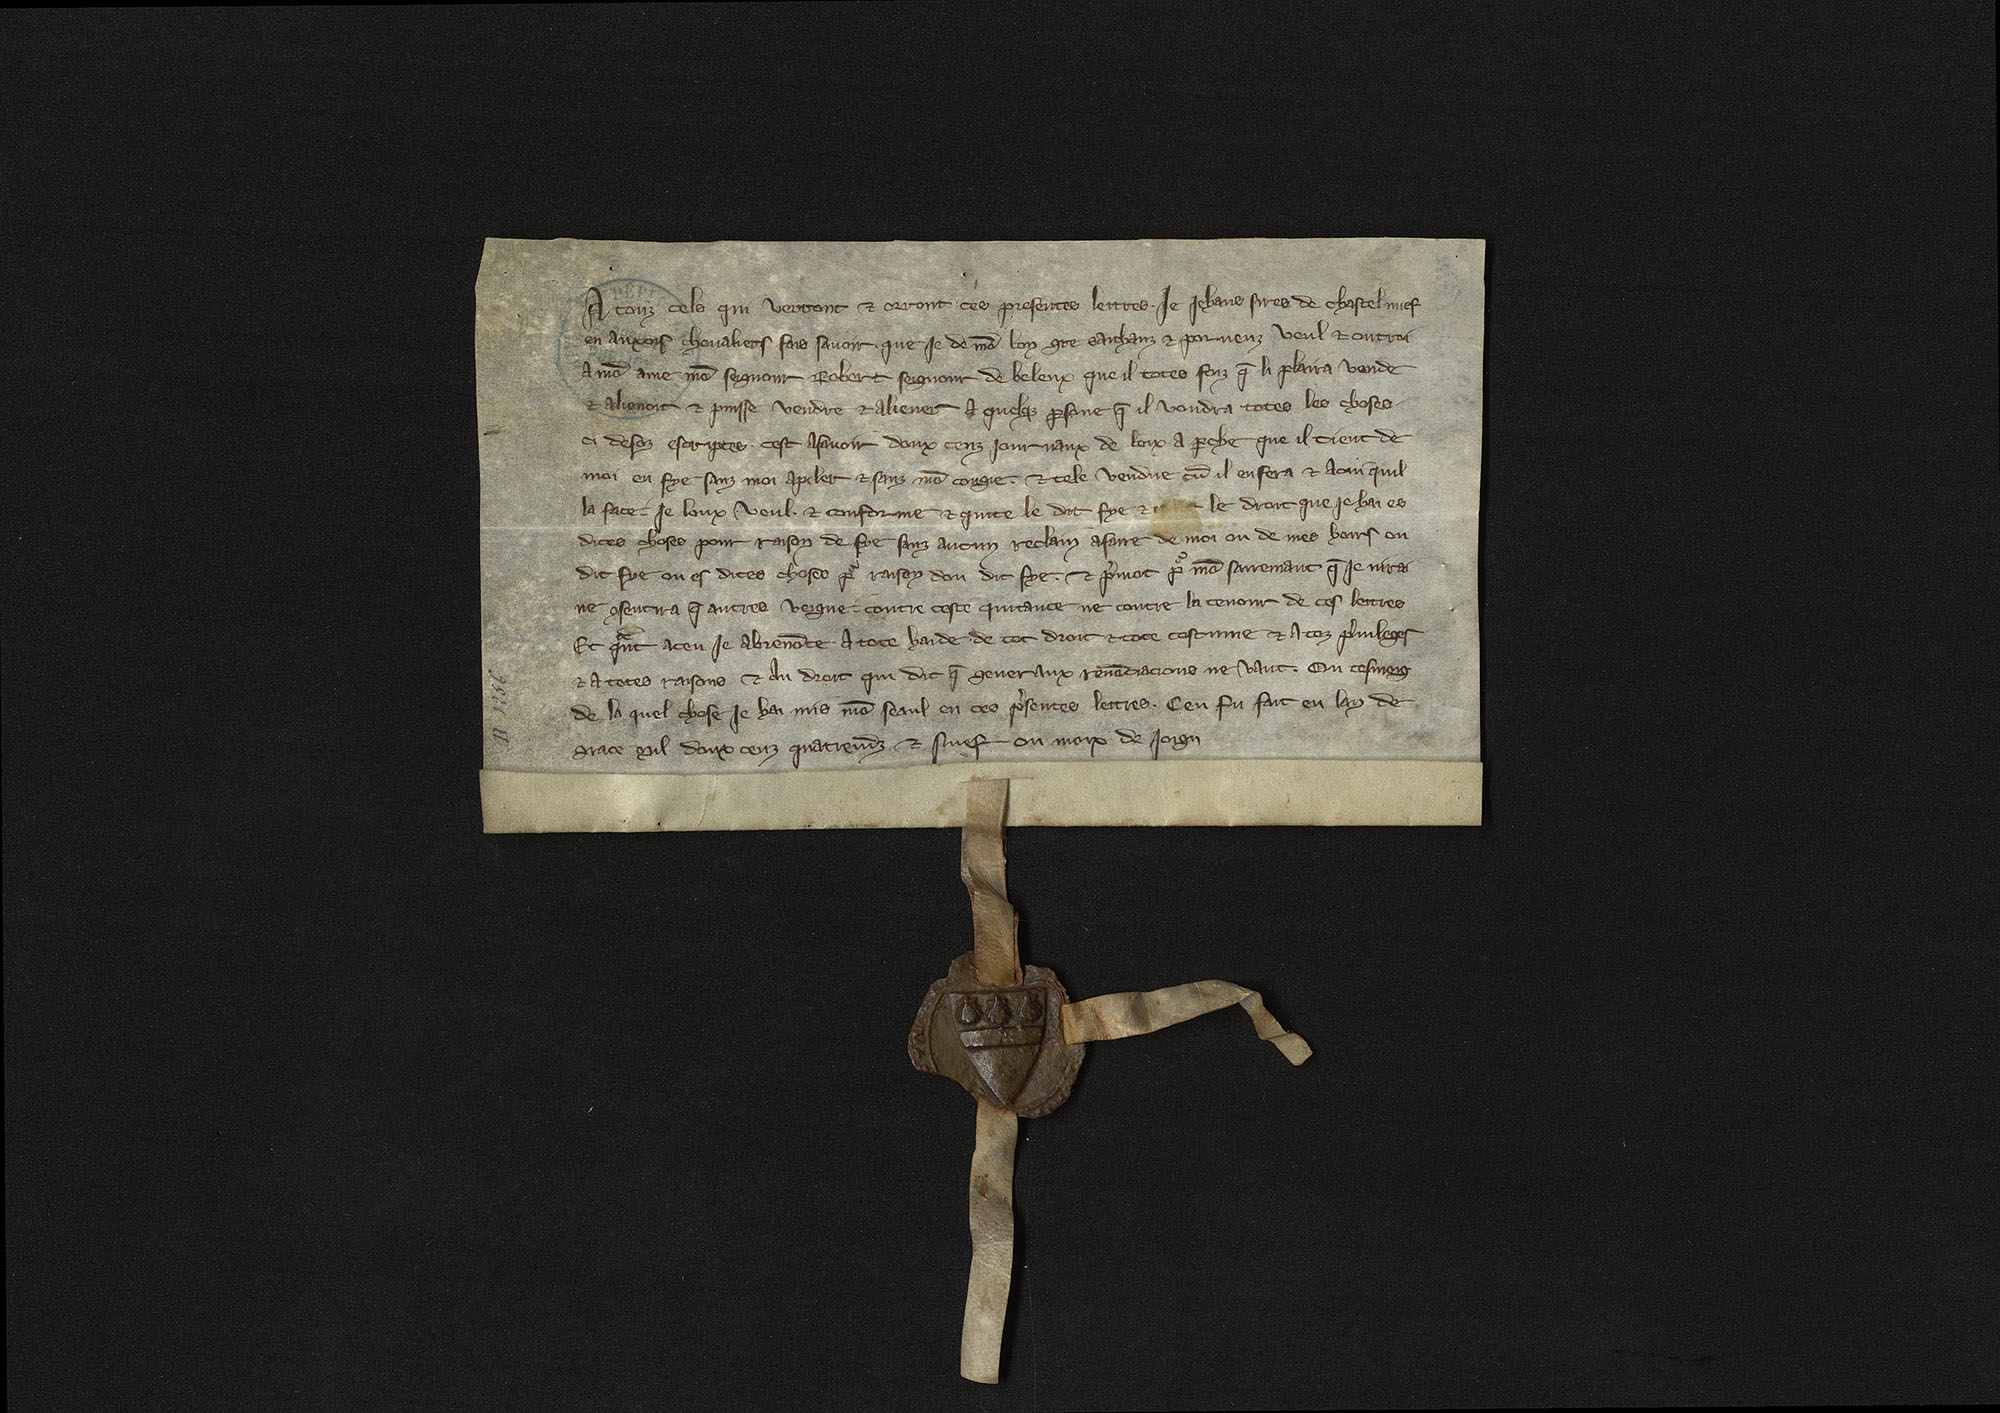 A touz cels qui verront & orront ces presentes lettres. Je Jehans sires de chastelnuef
en Auxois chevaliers fais savoir que je de mō bon gre sachanz & porveuz veul & outroi
A mō ame mō seignour Robert seignour de beleux que il totes foiz q̄ li plaira vende
& alienoit & puisse vendre & aliener A quelq; ꝑsone q̄ il voudra totes les choses
ci desoz escriptes. cest asavoir doux cenz journaux de bois a ꝑche que il tient de
moi en fye sanz moi apeler & sanz mō congie. & tele vendue cū il en fera & a cui quil
la face. je loux veul. & conferme & quite le dit fye & le droit que je hai es
dites choses pour raison de fye sanz aucun reclain afaire de moi ou de mes hoirs ou
dit fye ou es dites choses pᵒ raison dou dit fye. & ꝓmot pᵒ mō sairemant q̄ je nirai
ne ꝯsentira q̄ autres veigne contre ceste quitance ne contre la tenour de ces lettres
Et qᵃnt aceu je abrenōce A tote haide de tot droit & tote costume & A toz pⁱvileges
& A totes raisons & Au droit qui dit q̄ generaux renōciacions ne vaut. Ou tesmoig
de la quel chose je hai mis mō seaul en ces pⁱsentes lettres. Ceu fu fait en lan de
grace mil doux cenz quatrevinz & nuef ou mois de join
B 1256